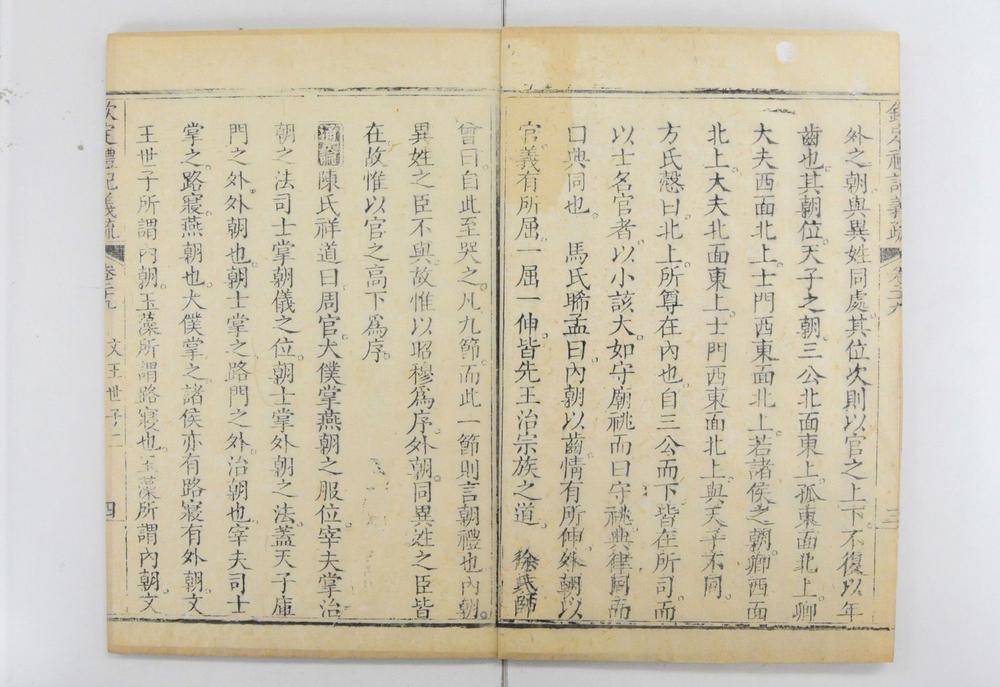 欽定禮記義疏 卷二十九 三
外之朝與異姓同處其位次則以官之上下不復以年
齒也其朝位天子之朝三公北面東上孤東面北上卿
大夫西面北上士門西東面北上若諸侯之朝卿西面
北上大夫北面東上士門西東面北上與天子不同
方氏慤曰北上所尊在內也自三公而下皆在所司而
以士名官者以小該大如守廟祧而曰守祧典律同而
曰典同也 馬氏睎孟曰內朝以齒情有所伸外朝以
官義有所屈一屈一伸皆先王治宗族之道 徐氏師
曾曰自此至哭之凡九節而此一節則言朝禮也內朝
異姓之臣不與故惟以昭穆為序外朝同異姓之臣皆
在故惟以官之高下為序
通論陳氏祥道曰周官大僕掌燕朝之服位宰夫掌治
朝之法司士掌朝儀之位朝士掌外朝之法蓋天子庫
門之外外朝也朝士掌之路門之外治朝也宰夫司士
掌之路寢燕朝也大僕掌之諸侯亦有路寢有外朝文
王世子所謂內朝玉藻所謂路寢也玉藻所謂內朝文
欽定禮記義疏 卷二十九 文王世子二 四